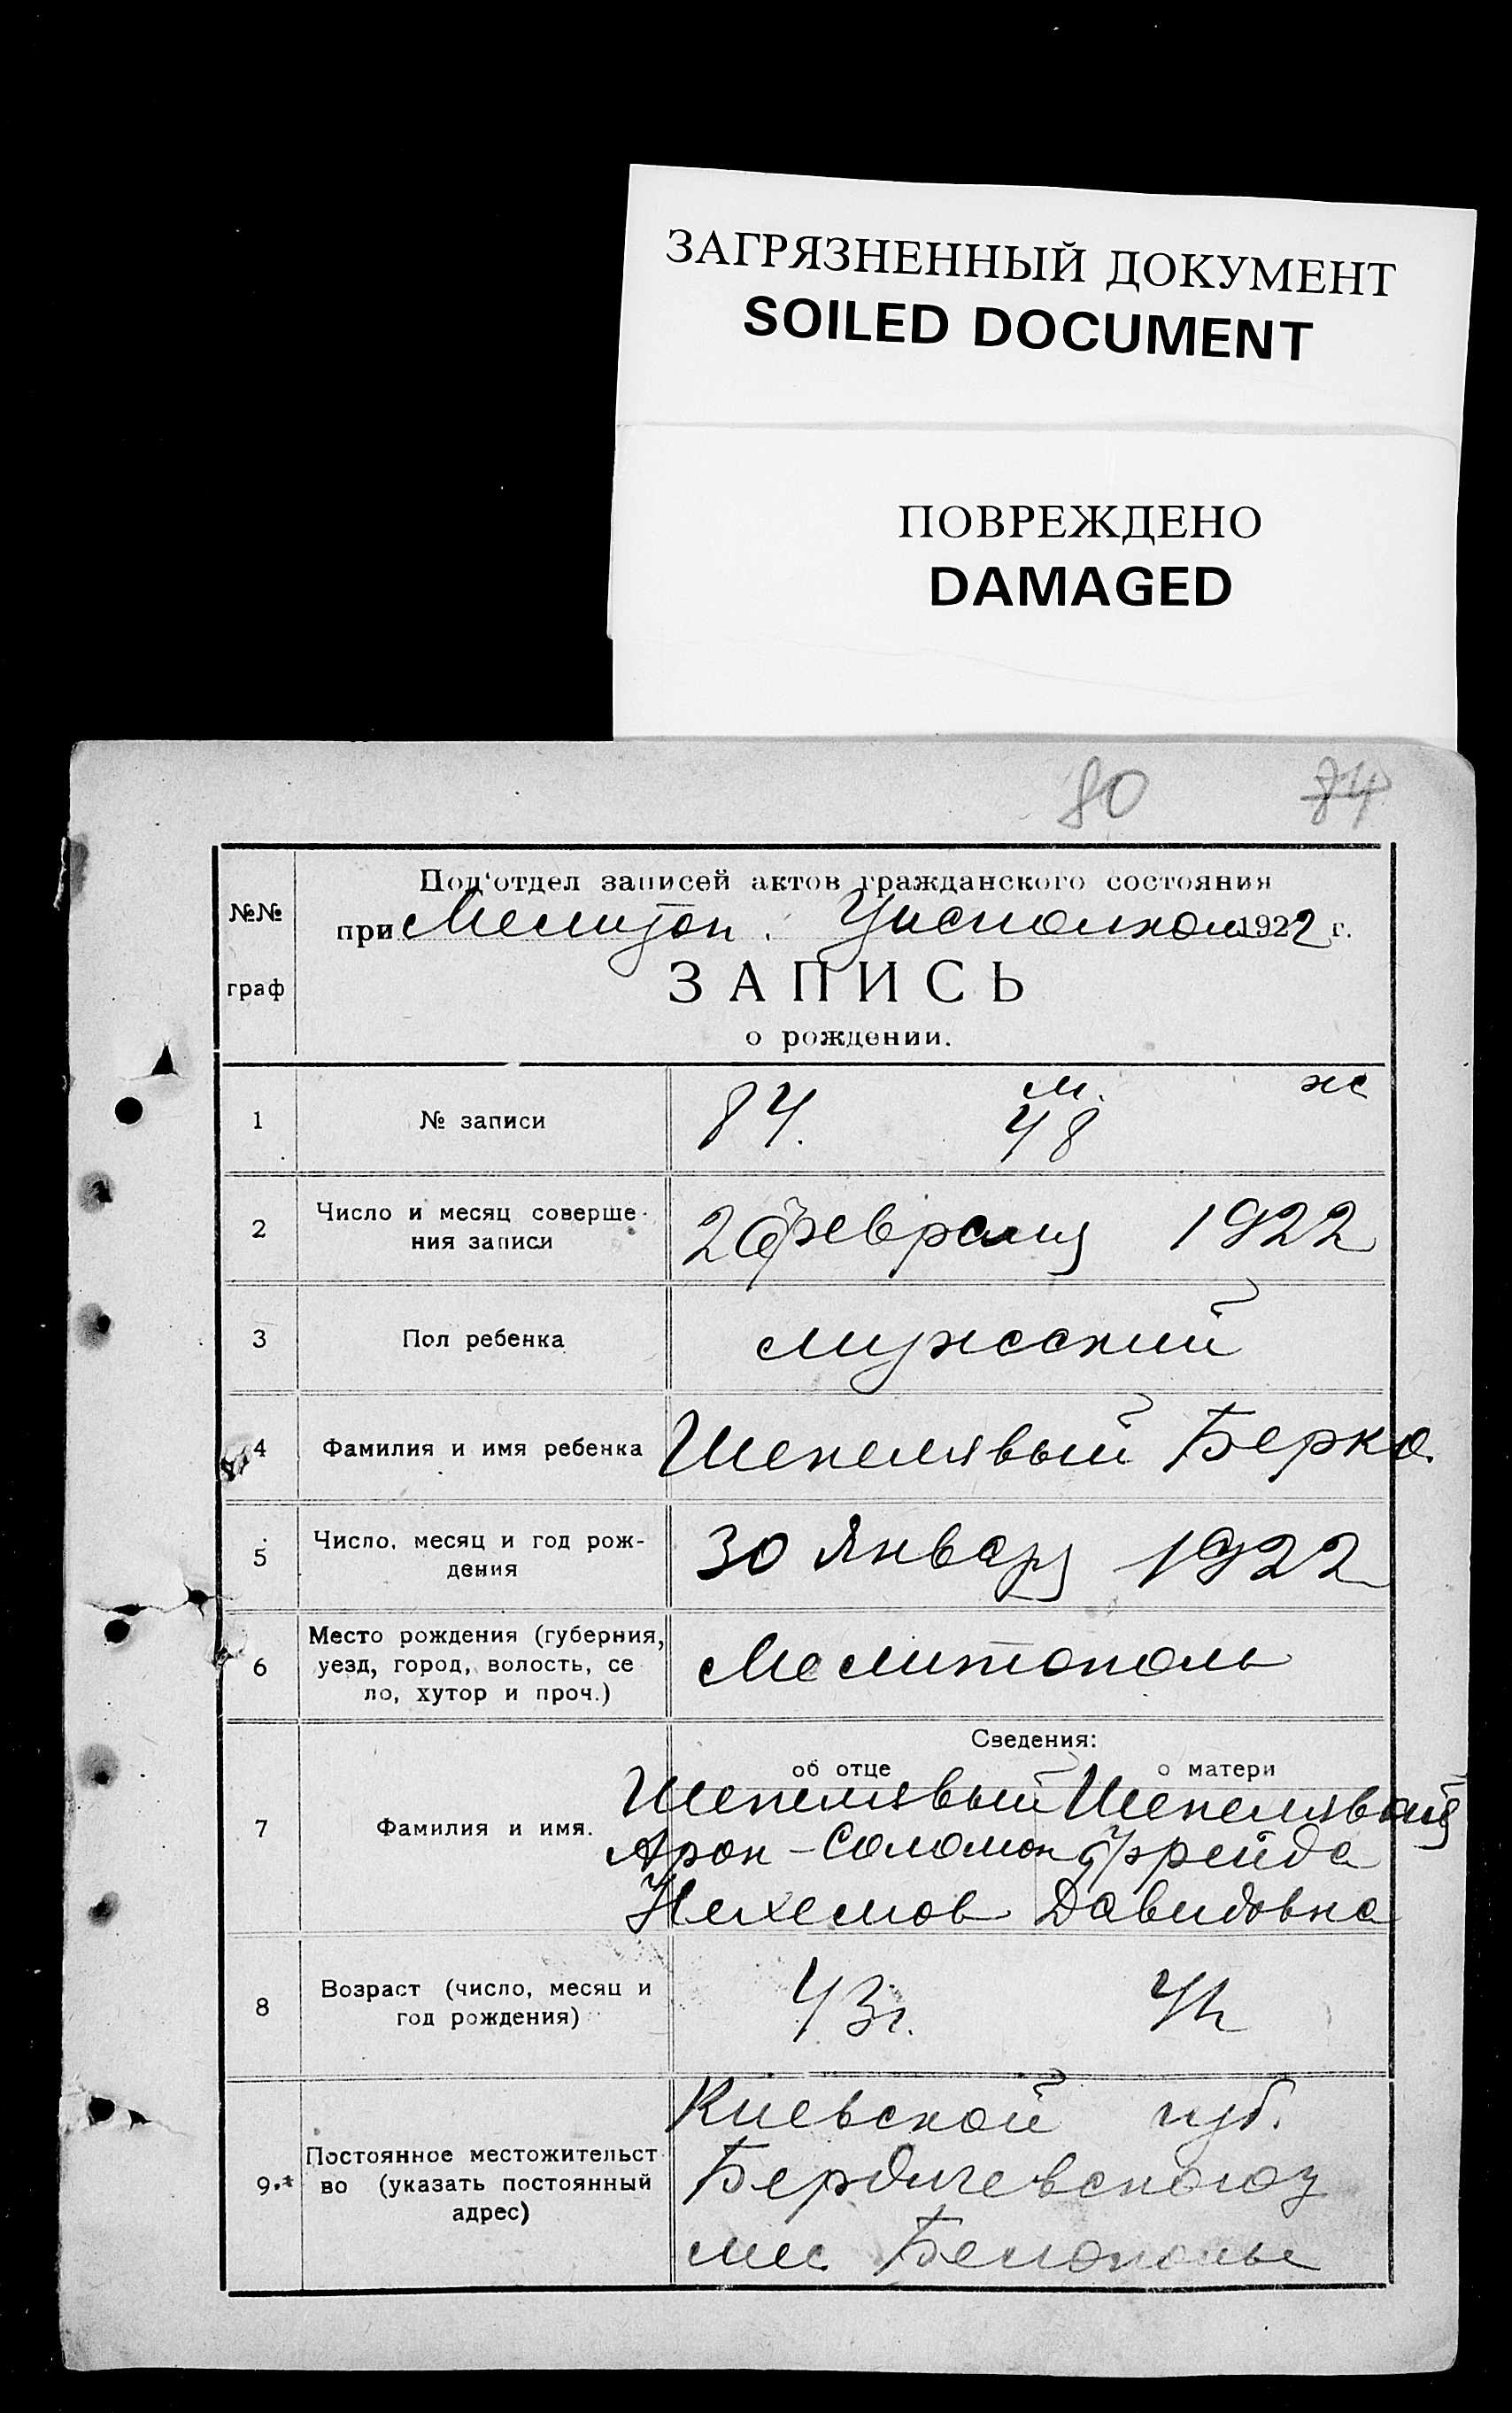 ЗАГРЯЗНЕННЫЙ ДОКУМЕНТ
SOILED DOCUMENT
ПОВРЕЖДЕНО
DAMAGED
80 84
Под'отдел записей актов гражданского состояния
при Мелитоп. Уисполком 1922 г.
№№
граф
ЗАПИСЬ
о рождении.
1 № записи 84. м. 48 ж
2 Число и месяц соверше-
ния записи 2 февраля 1922
3 Пол ребенка мужский
4 Фамилия и имя ребенка Шепелявый Берко.
5 Число, месяц и год рож-
дения 30 Января 1922
6 Место рождения (губерния,
уезд, город, волость, се
ло, хутор и проч.) Мелитополь
Сведения:
об отце о матери
7 Фамилия и имя. Шепелявый Шепелявая
Арон-Соломон Фрейда
Нехемов Давидовна
8 Возраст (число, месяц и
год рождения) 43г.
9 Постоянное местожительст
во (указать постоянный
адрес) Киевской губ.
Бердичевского у
мес Белополье